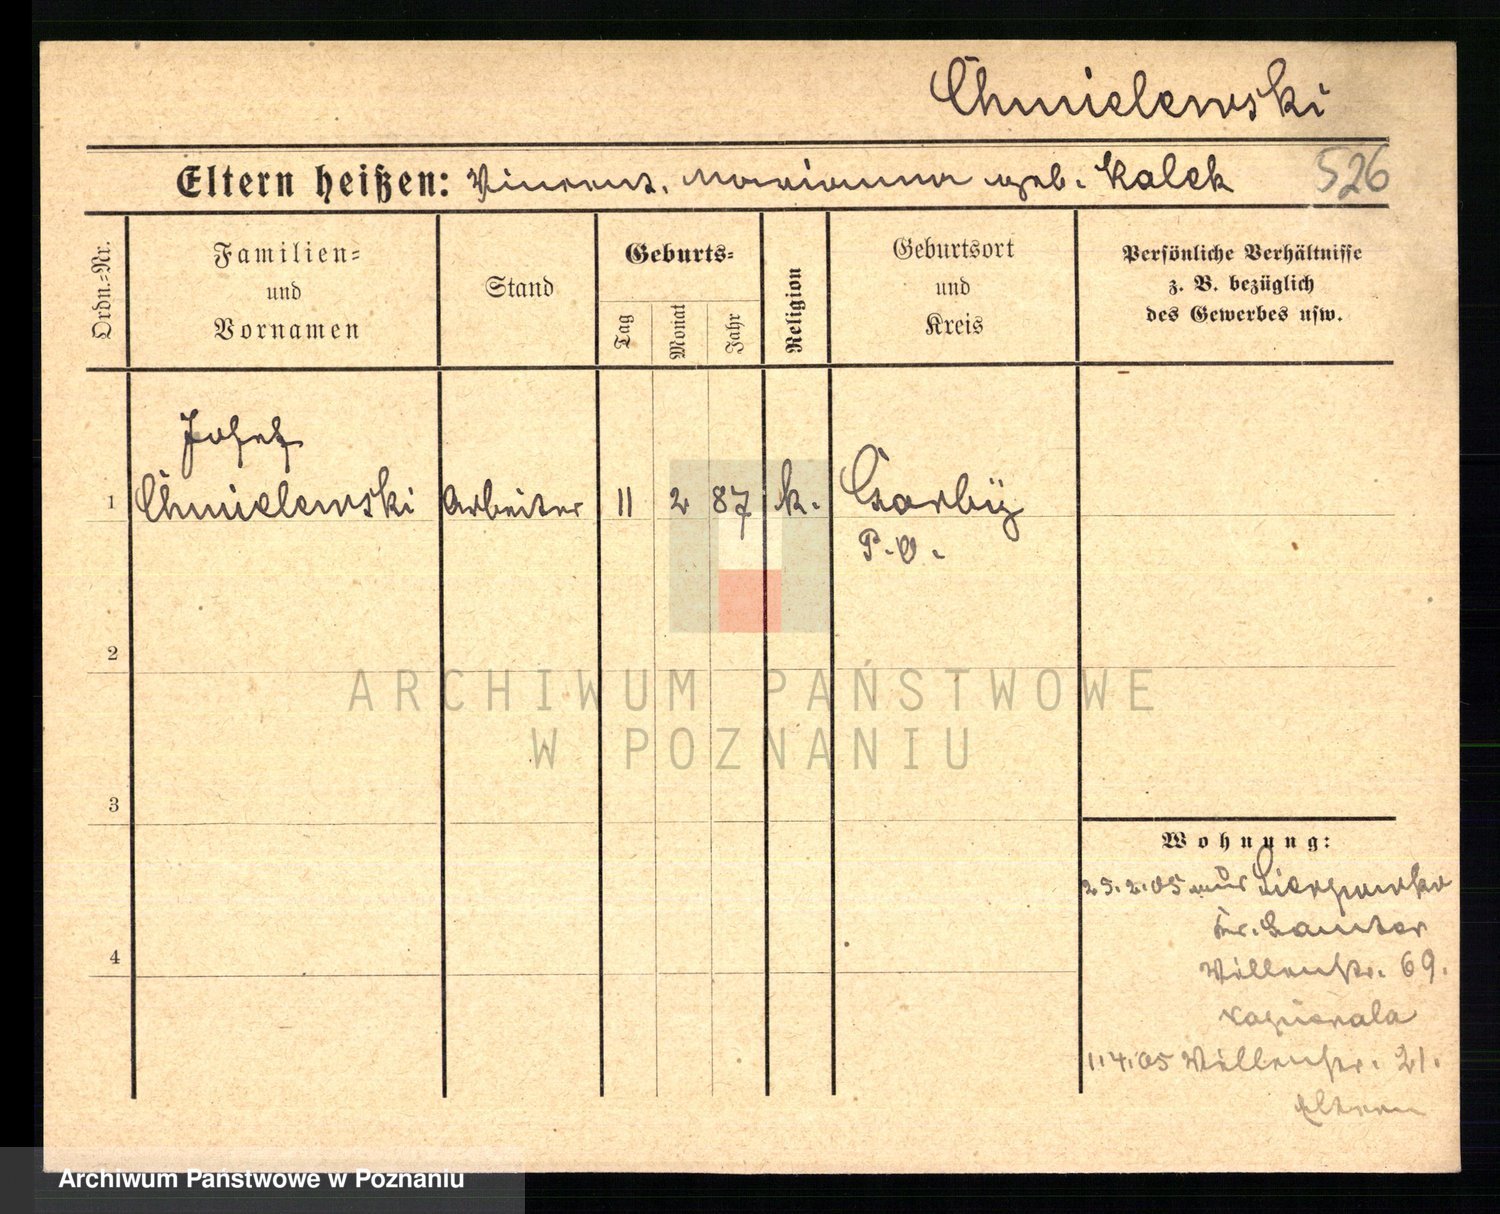 Chmielewski
Eltern heißen: Vincent. Marianna geb. Kalek 526
Ordn.-Nr.
Familien-
und
Vornamen
Stand
Geburts-
Tag
Monat
Jahr
Religion
Geburtsort
und
Kreis
Persönliche Verhältnisse
z. B. bezüglich
des Gewerbes usw.
Josef
1 Chmielewski Arbeiter 11 2 87 k.
P. O.
2
3
4
Wohnung:
25.2.05 aus
Kr. Samter
69.
1.4.05 21.
Eltern
ARCHIWUM PAŃSTWOWE
W POZNANIU
Archiwum Państwowe w Poznaniu